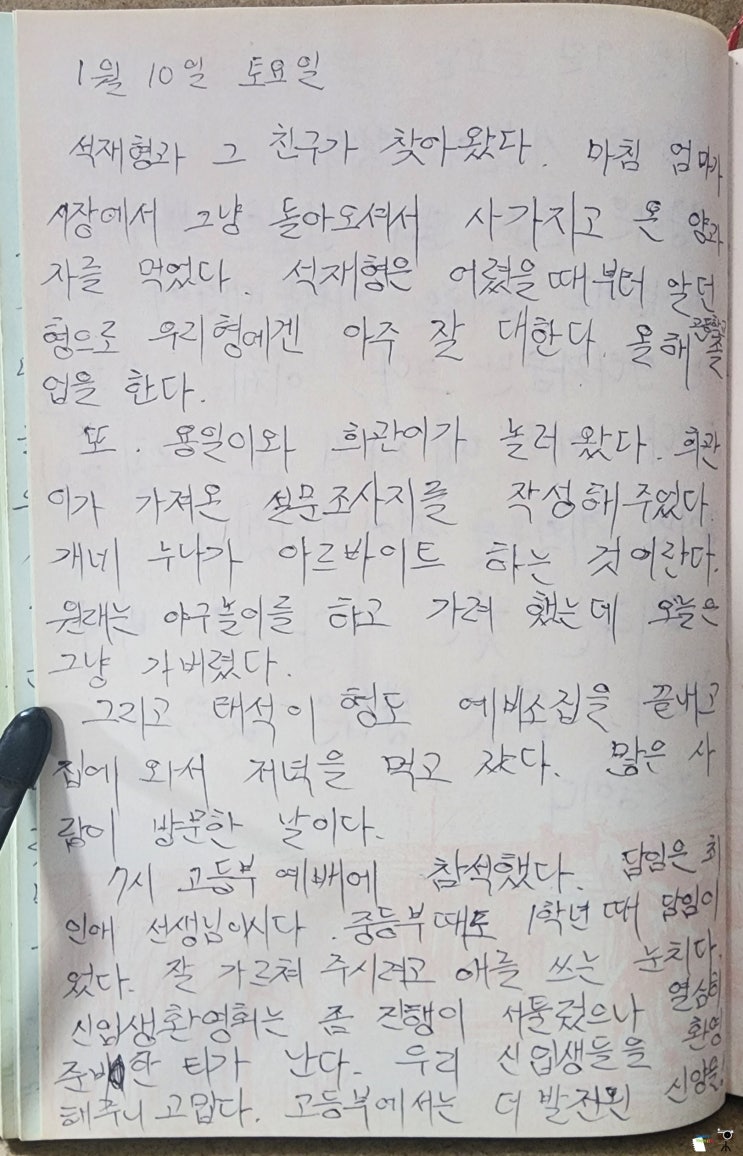 1월 10일 토요일
석재형과 그 친구가 찾아왔다. 마침 엄마가
시장에서 그냥 돌아오셔서 사가지고 온 양과
자를 먹었다. 석재형은 어렸을때부터 알던
형으로 우리형에겐 아주 잘 대한다. 올해 고등학교 졸
업을 한다.
또. 용일이와 희관이가 놀러왔다. 희관
이가 가져온 설문조사지를 작성해주었다.
개네 누나가 아르바이트 하는 것이란다.
원래는 야구놀이를 하고 가려 했는데 오늘은
그냥 가버렸다.
그리고 태석이 형도 예비소집을 끝내고
집에 와서 저녁을 먹고 갔다. 많은 사
람이 방문한 날이다.
7시 고등부 예배에 참석했다. 담임은 최
인애 선생님이시다. 중등부때도 1학년 때 담임이
었다. 잘 가르쳐 주시려고 애를 쓰는 눈치다.
신입생환영회는 좀 진행이 서툴렀으나 열심히
준비한 티가 난다. 우리 신입생들을 환영
해주니 고맙다. 고등부에서는 더 발전된 신앙을!